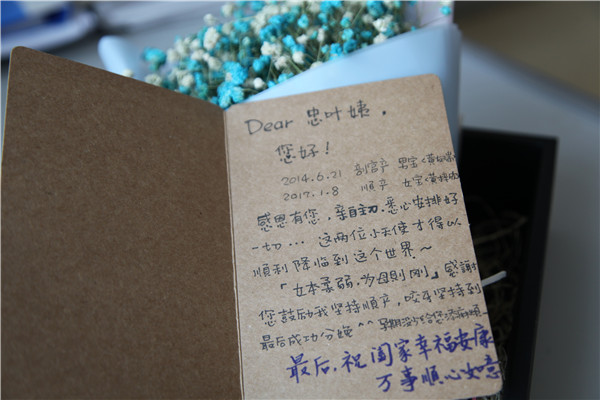 Dear 忠叶姨,
您好!
2014.6.21 剖宫产 男宝<黄
2017.1.8 順产 女宝<黄
感恩有您,亲自主刀.悉心安排好
一切… 这两位小天使才得以
順利降临到这个世界~
「女本柔弱,为母則刚」感謝
您鼓励我坚持順产,咬牙坚持到
最后成功分娩^^
最后.祝阖家幸福安康
万事順心如意